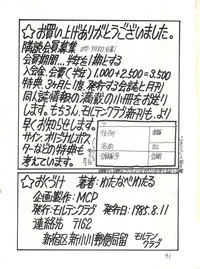 ☆お買い上げありがとうございました。
隣談会員募集
会員期間…半年を1期とする
入会金、会費(半年) 1,000+2,500=3,500
特典、3ヶ月に1度、発行する会誌と月刊
同人誌情報の満載の小冊をお送り
します。もちろん、モルテンクラブ新刊も、より
早くお知らせします。
サイン、オリジナルポス
ターなどの特典も
考えています。
住所
名前
☆おくづけ 著者:わたなべわたる
企画製作:MCP
発行:モルテンクラブ 発行日:1985.8.11
連絡先 〒162
新宿区新小川町郵便局留 モルテンクラブ
41